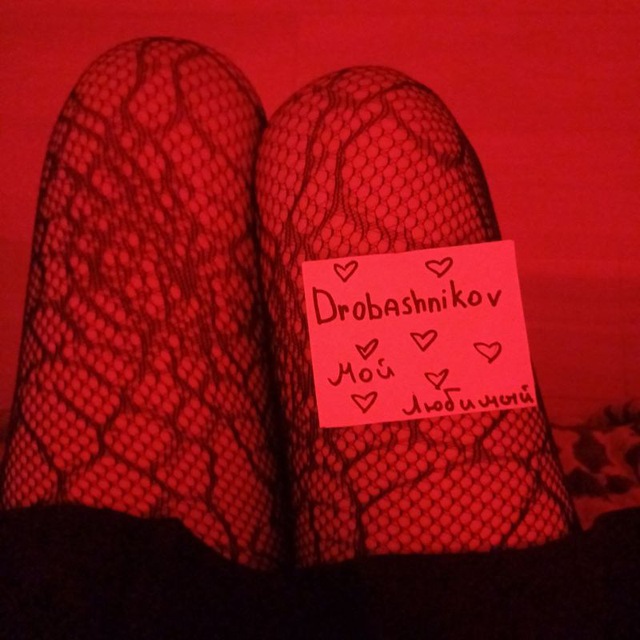 Drobashnikov
мой
Любимый